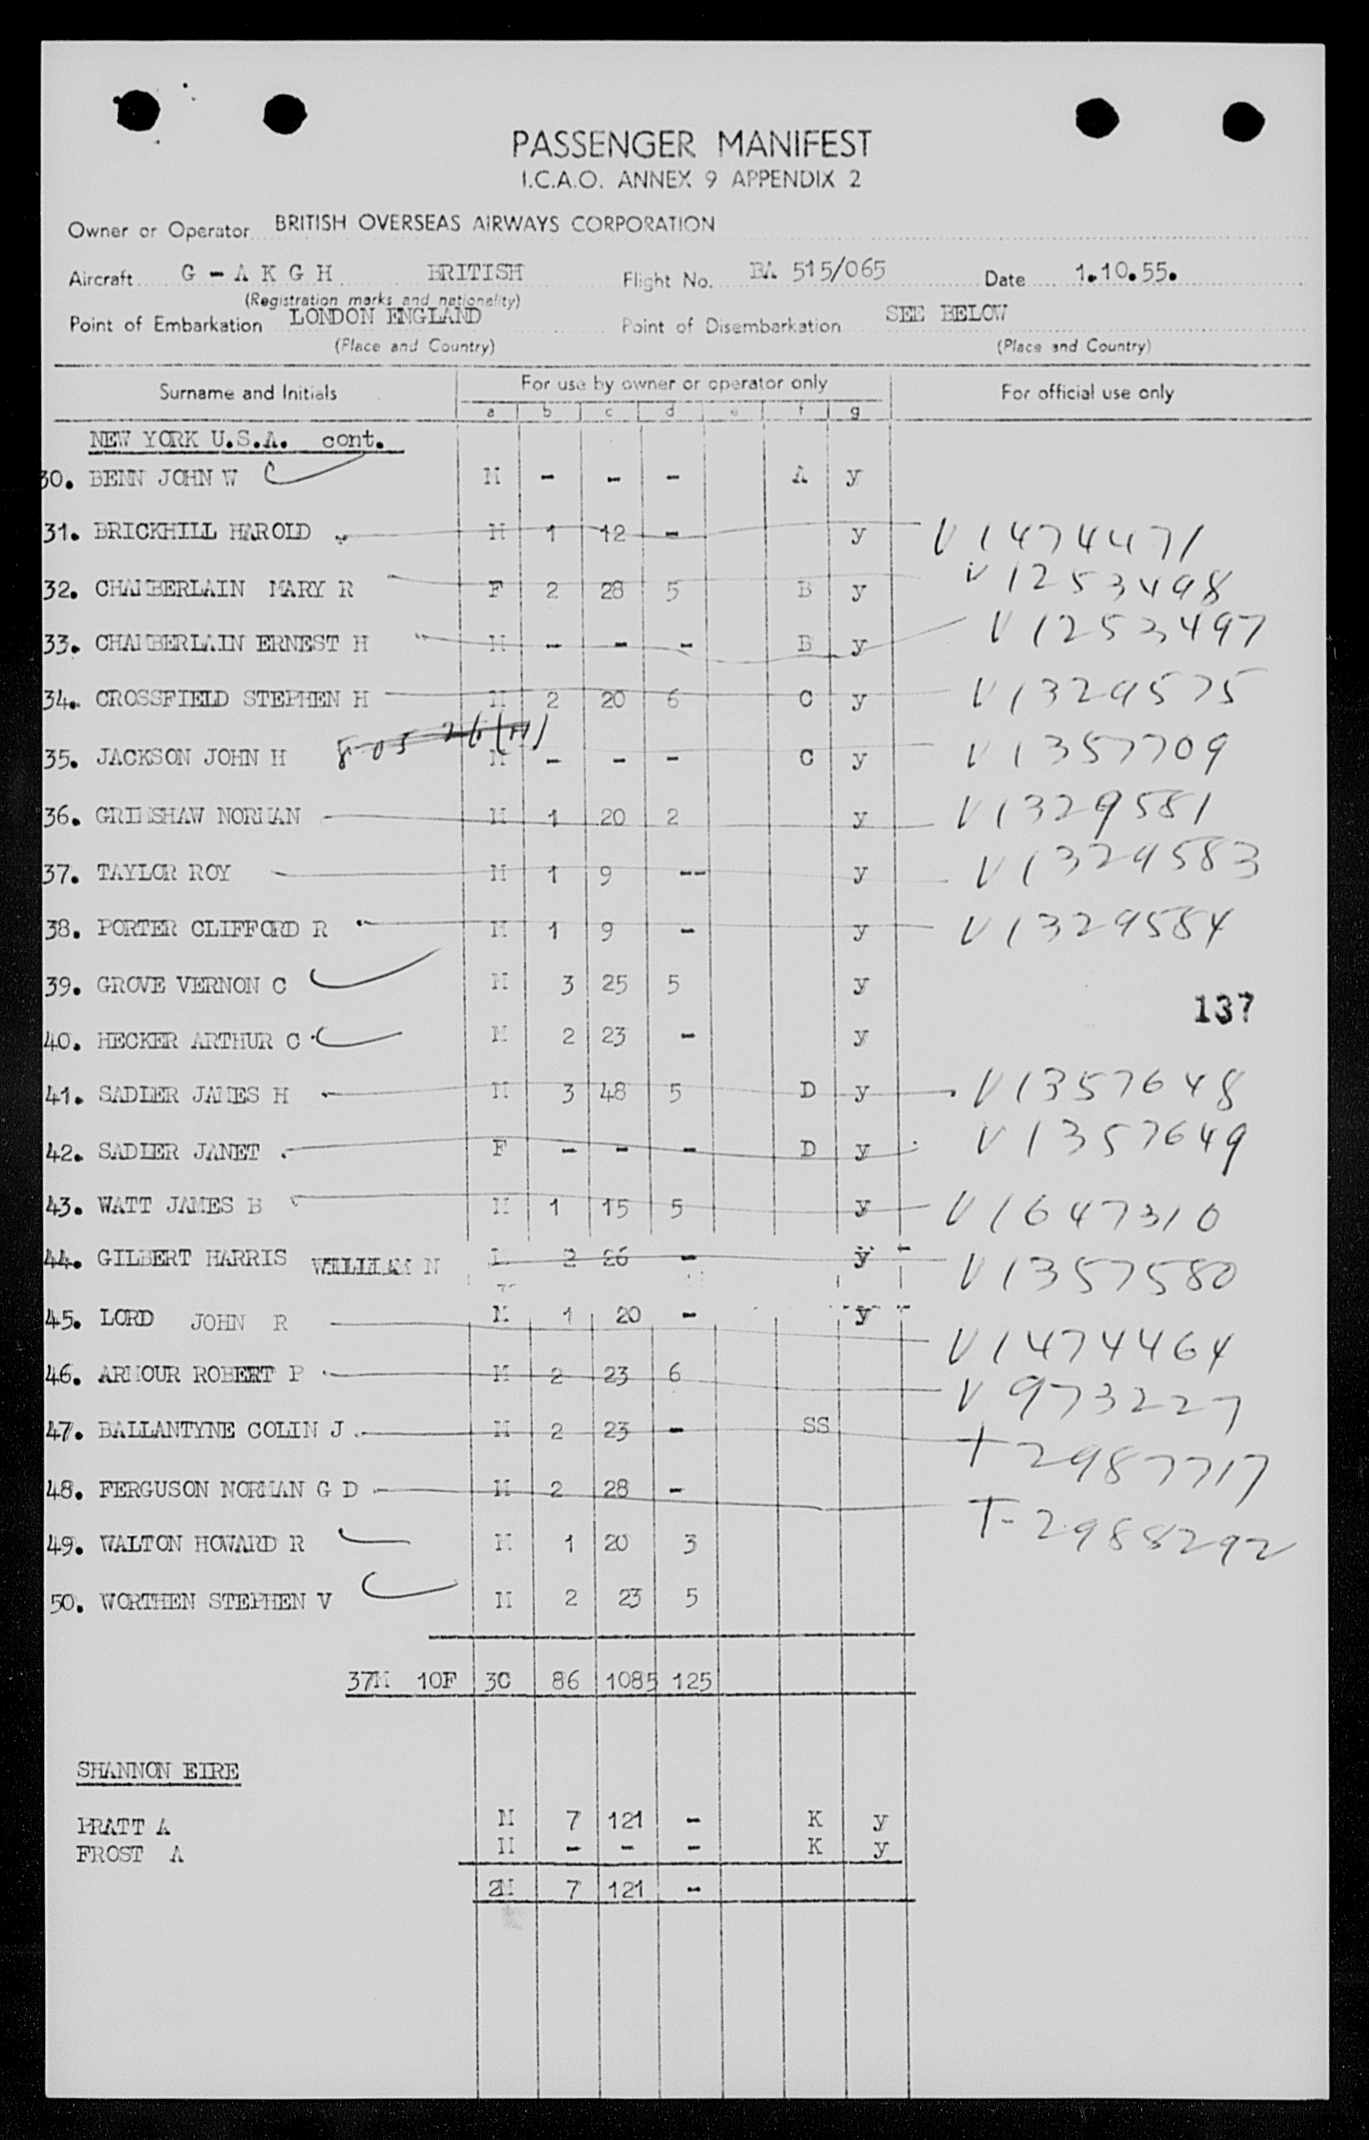 PASSENGER MANIFEST
I.C.A.O. ANNEX 9 APPENDIX 2
Owner or Operator BRITISH OVERSEAS AIRWAYS CORPORATION
Aircraft G - A K G H BRITISH Flight No. BA 515/065 Date 1.10.55.
(Registration marks and nationality)
Point of Embarkation LONDON ENGLAND Point of Disembarkation SEE BELOW
(Place and Country) (Place and Country)
Surname and Initials For use by owner or operator only For official use only
a b c d e f g
NEW YORK U.S.A. cont.
30. BENN JOHN W M - - - A y
31. BRICKHILL HAROLD M 1 12 - y V1474471
32. CHAMBERLAIN MARY R F 2 28 5 B y V1253498
33. CHAMBERLAIN ERNEST H M - - - B y V1253497
34. CROSSFIELD STEPHEN H M 2 20 6 C y V1329575
35. JACKSON JOHN H M - - - C y V1357709
36. GRIMSHAW NORMAN M 1 20 2 y V1329581
37. TAYLOR ROY M 1 9 -- y V1329583
38. PORTER CLIFFORD R M 1 9 - y V1329584
39. GROVE VERNON C M 3 25 5 y
137
40. HECKER ARTHUR C M 2 23 - y
41. SADLER JAMES H M 3 48 5 D y V1357648
42. SADLER JANET F - - - D y V1357649
43. WATT JAMES B M 1 15 5 y V1647310
44. GILBERT HARRIS WILLIAM N 2 26 - y V1357580
45. LORD JOHN R M 1 20 - y V1474464
46. ARMOUR ROBERT P M 2 23 6 V973227
47. BALLANTYNE COLIN J. M 2 23 - SS T2987717
48. FERGUSON NORMAN G D M 2 28 - T-2988292
49. WALTON HOWARD R M 1 20 3
50. WORTHEN STEPHEN V M 2 23 5
37M 10F 3C 86 1085 125
SHANNON EIRE
PRATT A M 7 121 - K y
FROST A M - - - K y
2M 7 121 -